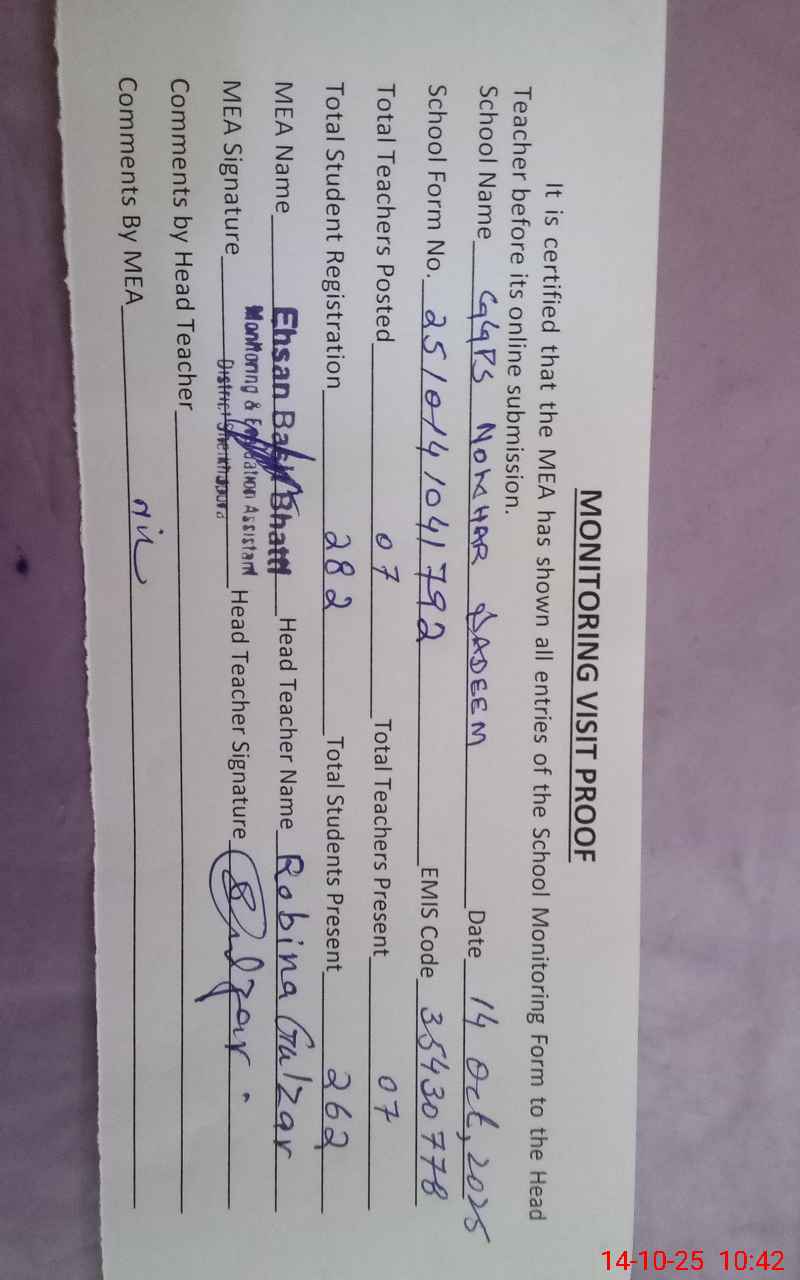 MONITORING VISIT PROOF
It is certified that the MEA has shown all entries of the School Monitoring Form to the Head
Teacher before its online submission.
School Name GGPS NOKHAR QADEEM Date 14 Oct, 2025
School Form No. 2510141041792 EMIS Code 35430778
Total Teachers Posted 07 Total Teachers Present 07
Total Student Registration 282 Total Students Present 262
MEA Name Ehsan Bhatti Head Teacher Name Robina Gulzar
Monitoring & Assistant
MEA Signature District Sheikhupura Head Teacher Signature
Comments by Head Teacher
Comments By MEA Nil
14-10-25 10:42